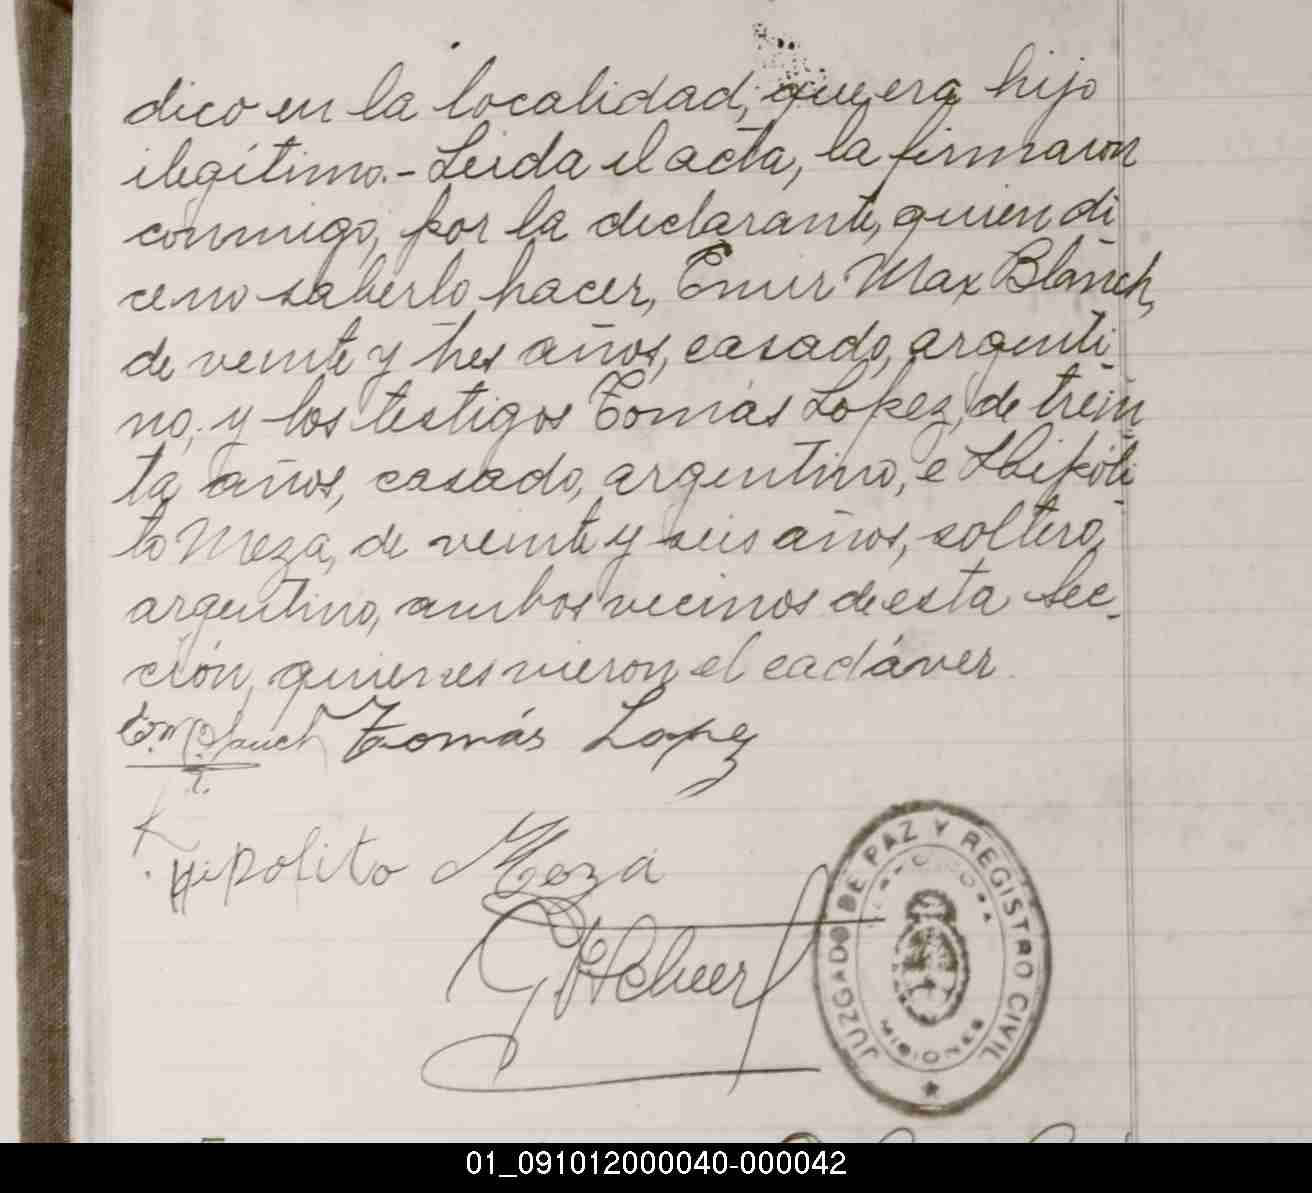 dico en la localidad, que era hijo
ilegítimo.- Leida el acta, la firmaron
conmigo, por la declarante, quien di
ce no saberlo hacer, Emir Max Blanch,
de veinte y tres años, casado, argenti
no, y los testigos Tomás Lopez, de trein
ta años, casado, argentino, e Hipóli
to Meza, de veinte y seis años, soltero,
argentino, ambos vecinos de esta Sec-
ción, quienes vieron el cadáver.
Blanch Tomás Lopez
Hipolito Meza
JUZGADO DE PAZ Y REGISTRO CIVIL
MISIONES
01_091012000040-000042